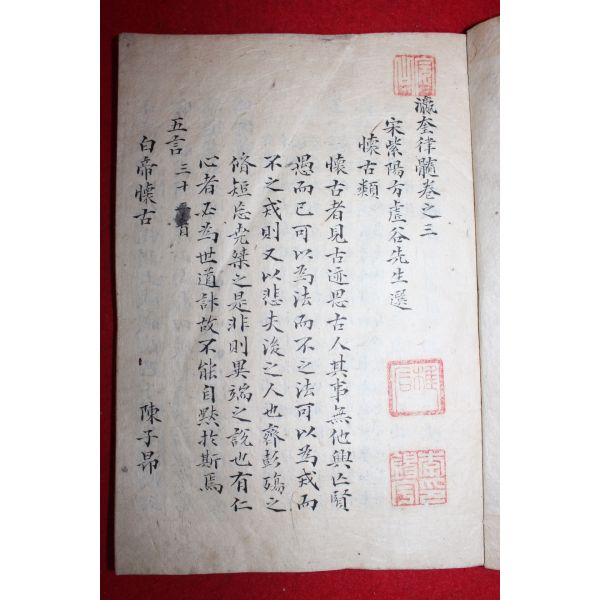 瀛奎律髓卷之三
宋紫陽方虛谷先生選
懷古類
懷古者見古迹思古人其事無他興亡賢
愚而已可以為法而不之法可以為戎而
不之戎則又以悲夫後之人也齊彭殤之
脩短忘堯桀之是非則異端之說也有仁
心者必為世道計故不能自默於斯焉
五言 三十首
白帝懷古 陳子昂